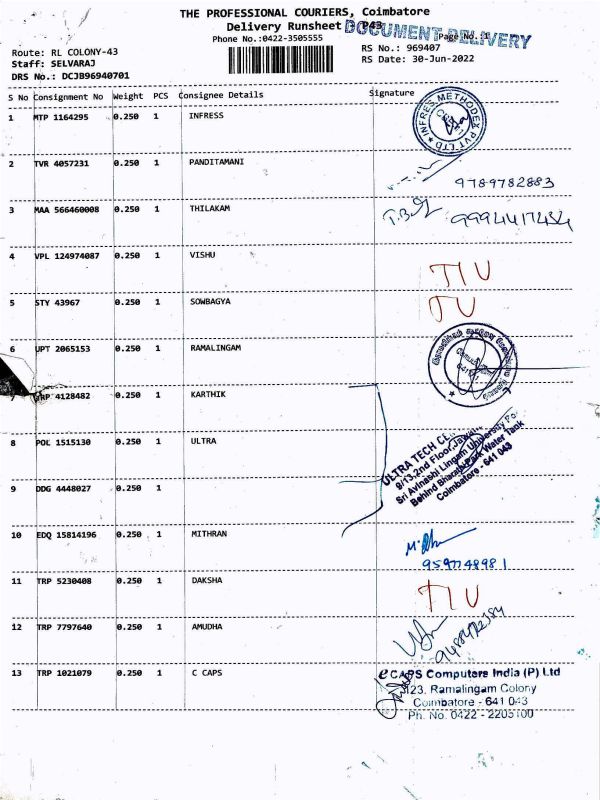 THE PROFESSIONAL COURIERS, Coimbatore
Delivery Runsheet - P43
DOCUMENT DELIVERY
Page No. 1
Phone No.:0422-3505555
Route: RL COLONY-43
RS No.: 969407
Staff: SELVARAJ
RS Date: 30-Jun-2022
DRS No.: DCJB96940701
S No Consignment No Weight PCS Consignee Details Signature
1 MTP 1164295 0.250 1 INFRESS
INFRES METHODEX PVT LTD
2 TVR 4057231 0.250 1 PANDITAMANI
9789782883
3 MAA 566460008 0.250 1 THILAKAM
4 VPL 124974087 0.250 1 VISHU
5 STY 43967 0.250 1 SOWBAGYA
6 UPT 2065153 0.250 1 RAMALINGAM
7 4128482 0.250 1 KARTHIK
8 POL 1515130 0.250 1 ULTRA
ULTRA TECH
9/13, 2nd Floor,
Sri Avinashi Lingam University
Behind Bharathi Park Water Tank
Coimbatore - 641 043
9 DDG 4448027 0.250 1
10 EDQ 15814196 0.250 1 MITHRAN
11 TRP 5230408 0.250 1 DAKSHA
12 TRP 7797640 0.250 1 AMUDHA
13 TRP 1021079 0.250 1 C CAPS
e CAPS Computers India (P) Ltd
123, Ramalingam Colony
Coimbatore - 641 043
Ph. No. 0422 - 2205100